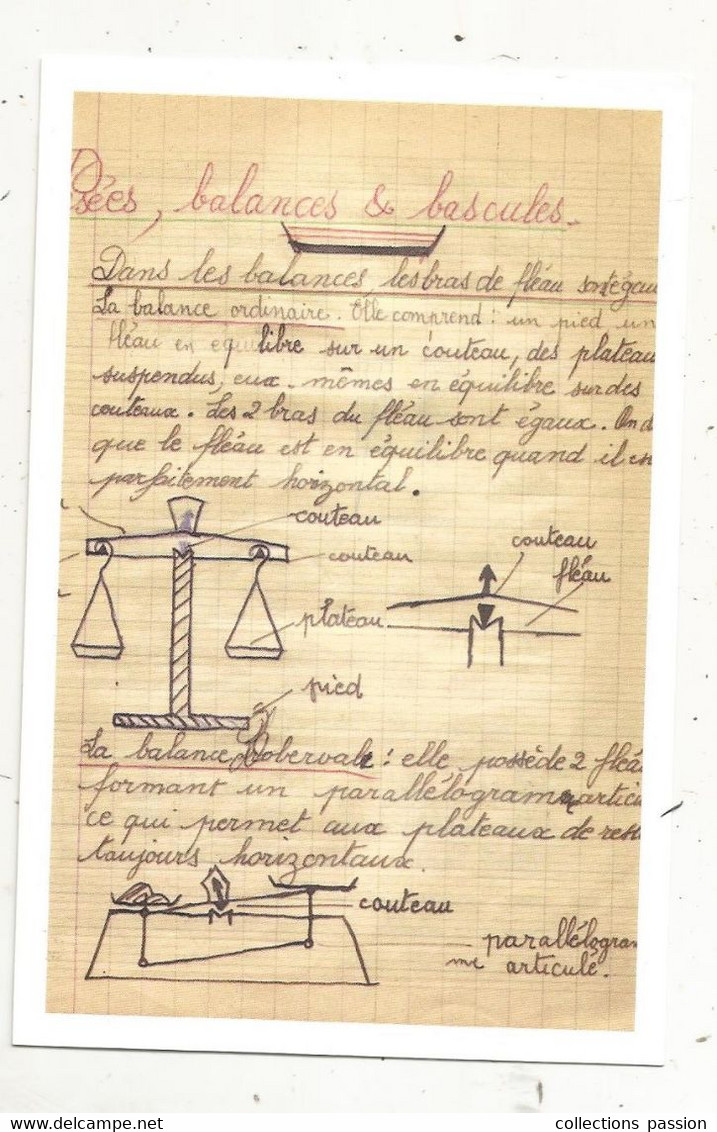 Psées, balances & bascules.
Dans les balances, les bras de fléau sont égau
La balance ordinaire. Elle comprend : un pied un
fléau en équilibre sur un couteau, des plateau
suspendus, eux-mêmes en équilibre sur des
couteaux. Les 2 bras du fléau sont égaux. On d
que le fléau est en équilibre quand il es
parfaitement horizontal.
couteau
couteau
plateau
pied
couteau
fléau
La balance Roberval : elle possède 2 fléa
formant un parallélogramme articu
ce qui permet aux plateaux de res
toujours horizontaux.
couteau
parallélogram
me articulé.
collections passion